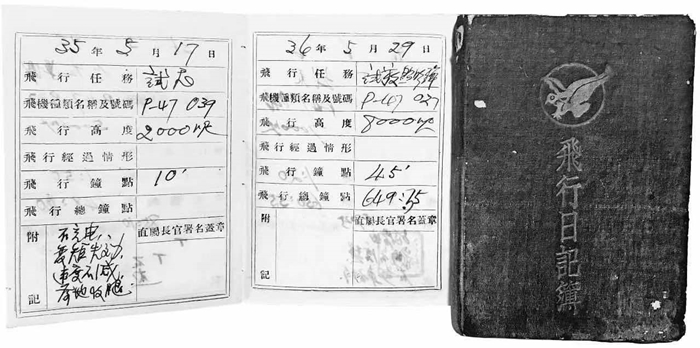 35 年 5 月 17 日
飛行任務 試飛
飛機種類名稱及號碼 P-47 039
飛行高度 2000呎
飛行經過情形
飛行鐘點 10'
飛行總鐘點
附記 不充电
直屬長官署名蓋章
36 年 5 月 29 日
飛行任務
飛機種類名稱及號碼 P-47 021
飛行高度 8000呎
飛行經過情形
飛行鐘點 45'
飛行總鐘點 649:35
附記
直屬長官署名蓋章
飛行日記簿